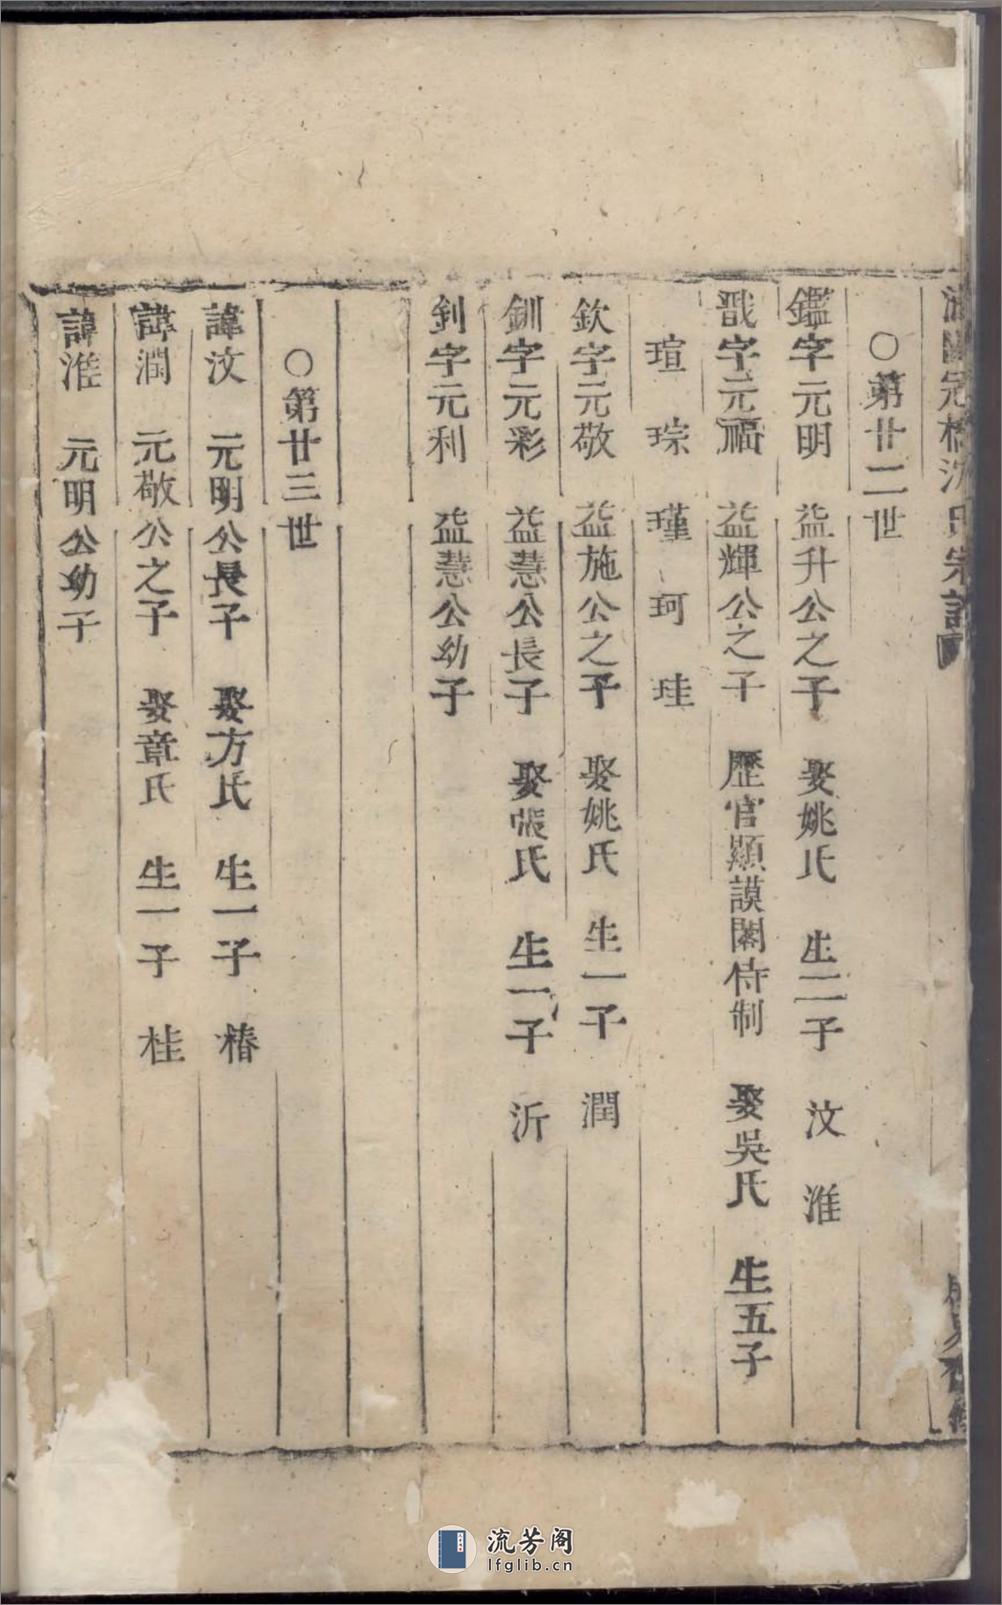 冠橋沈氏宗譜
○第廿二世
鑑字元明 益升公之子 娶姚氏 生二子 汶 淮
戩字元福 益輝公之子 歷官顯謨閣待制 娶吳氏 生五子
瑄 琮 瑾 珂 珪
欽字元敬 益施公之子 娶姚氏 生一子 潤
釧字元彩 益慧公長子 娶張氏 生一子 沂
釗字元利 益慧公幼子
○第廿三世
諱汶 元明公長子 娶方氏 生一子 椿
諱潤 元敬公之子 娶章氏 生一子 桂
諱淮 元明公幼子
流芳阁
lfglib.cn